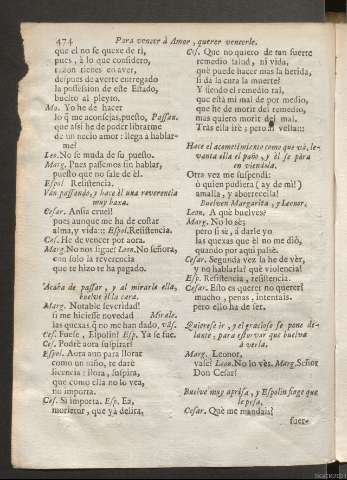 474 Para vencer à Amor, querer vencerle.
que el no se quexe de ti,
pues, à lo que considero,
razon tienes en aver,
despues de averte entregado
la possession de este Estado,
bucito al pleyto.
Ma. Yo he de hacer
lo q̃ me aconsejas, puesto, Passan.
que assi he de poder librarme
de un necio amor: llega à hablarme?
Leo. No se muda de su puesto.
Marg. Pues passemos sin hablar,
puesto que no sale de èl.
Espol. Resistencia.
Van passando, y hace èl una reverencia
muy baxa.
Cesar. Ansia cruel!
pues aunque me ha de costar
alma, y vida:: Espol. Resistencia.
Ces. He de vencer por aora.
Marg. No nos sigue? Leon. No señora,
con solo la reverencia
que te hizo te ha pagado.
Acaba de passar, y al mirarle ella,
buelve èl la cara.
Marg. Notable severidad!
si me hiciesse novedad Mirale.
las quexas q̃ no me han dado, vãs.
Ces. Fuese, Espolin? Esp. Ya se fue.
Ces. Podrè aora suspirar?
Espol. Aora aun para llorar
como un niño, te darè
licencia: llora, suspira,
que como ella no lo vea,
no importa.
Ces. Si importa. Esp. Ea,
moriertur, que yà delira,
Ces. Que no quiero de tan fuerte
remedio salud, ni vida,
què puede hacer mas la herida,
si dà la cura la muerte?
Y siendo el remedio tal,
que està mi mal de por medio,
que he de morir del remedio,
mas quiero morir del mal.
Tras ella irè; pero ai vella!!!
Hace el acometimiento como que và, levanta
ella el paño, y èl se pàra
en viendola.
Otra vez me suspendi:
ò quien pudiera (ay de mi!)
amalla, y aborrecella!
Buelven Margarita, y Leonor.
Leon. A què buelves?
Marg. No lo sè;
pero si sè, à darle yo
las quexas que èl no me diò,
quando por aqui passè.
Cesar. Segunda vez la he de vèr,
y no hablarla? què violencia!
Esp. Resistencia, resistencia.
Cesar. Esto es querer no querer?
mucho, penas, intentais.
pero ello ha de ser.
Quierese ir, y el gracioso se pone delante,
para estorvar que buelva
à verla.
Marg. Leonor,
vase? Leon. No lo vès. Marg. Señor
Don Cesar?
Buelve muy aprisa, y Espolin finge que
le pesa.
Cesar. Què me mandais?
fuer-